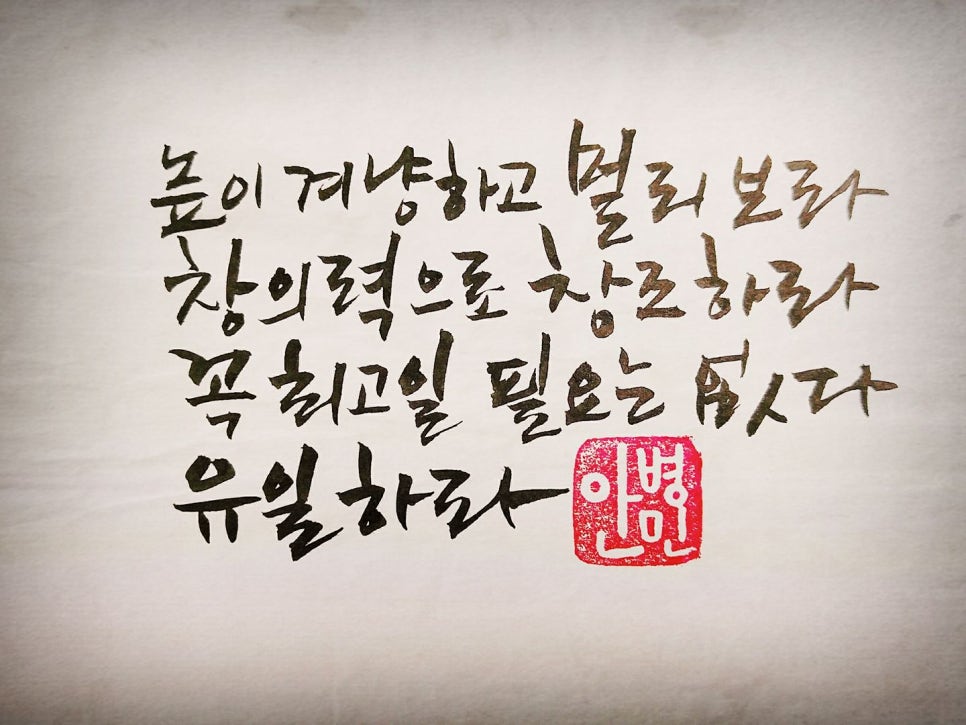 높이 겨냥하고 멀리 보라
창의력으로 창조하라
꼭 최고일 필요는 없다
유일하라
안병민